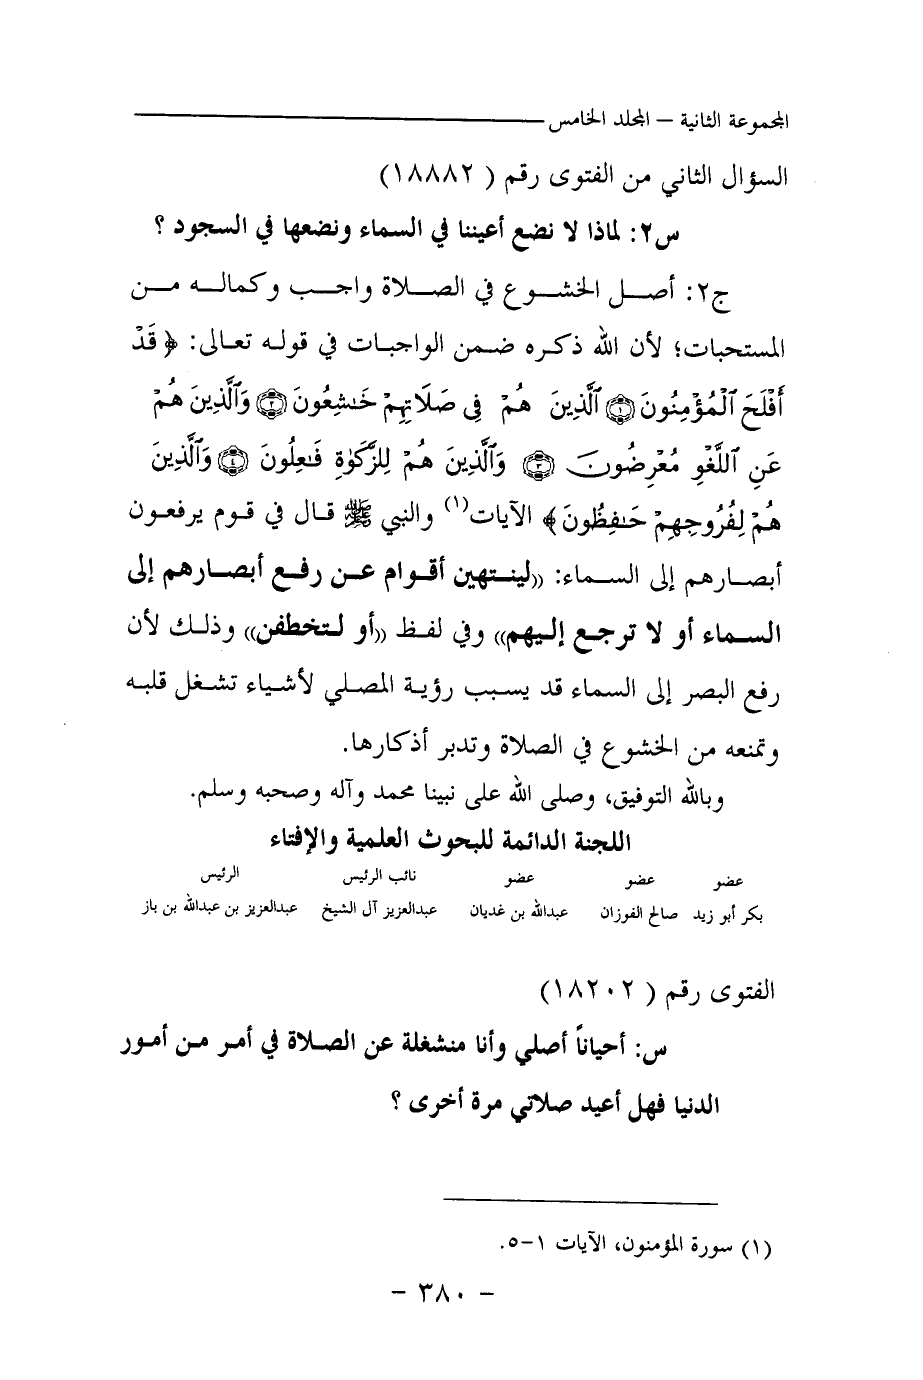 المجموعة الثانية – المجلد الخامس
السؤال الثاني من الفتوى رقم ( ١٨٨٨٢)
س٢: لماذا لا نضع أعيننا في السماء ونضعها في السجود ؟
ج٢: أصل الخشوع في الصلاة واجب وكماله من
المستحبات؛ لأن الله ذكره ضمن الواجبات في قوله تعالى: ﴿ قَدْ
أَفْلَحَ ٱلْمُؤْمِنُونَ ۝١ ٱلَّذِينَ هُمْ فِى صَلَاتِهِمْ خَٰشِعُونَ ۝٢ وَٱلَّذِينَ هُمْ
عَنِ ٱللَّغْوِ مُعْرِضُونَ ۝٣ وَٱلَّذِينَ هُمْ لِلزَّكَوٰةِ فَٰعِلُونَ ۝٤ وَٱلَّذِينَ
هُمْ لِفُرُوجِهِمْ حَٰفِظُونَ﴾ الآيات(١) والنبي ﷺ قال في قوم يرفعون
أبصارهم إلى السماء: ((لينتهين أقوام عن رفع أبصارهم إلى
السماء أو لا ترجع إليهم)) وفي لفظ ((أو لتخطفن)) وذلك لأن
رفع البصر إلى السماء قد يسبب رؤية المصلي لأشياء تشغل قلبه
وتمنعه من الخشوع في الصلاة وتدبر أذكارها.
وبالله التوفيق، وصلى الله على نبينا محمد وآله وصحبه وسلم.
اللجنة الدائمة للبحوث العلمية والإفتاء
عضو عضو عضو نائب الرئيس الرئيس
بكر أبو زيد صالح الفوزان عبدالله بن غديان عبدالعزيز آل الشيخ عبدالعزيز بن عبدالله بن باز
الفتوى رقم ( ١٨٢٠٢)
س: أحياناً أصلي وأنا منشغلة عن الصلاة في أمر من أمور
الدنيا فهل أعيد صلاتي مرة أخرى ؟
(١) سورة المؤمنون، الآيات ١-٥.
- ٣٨٠ -